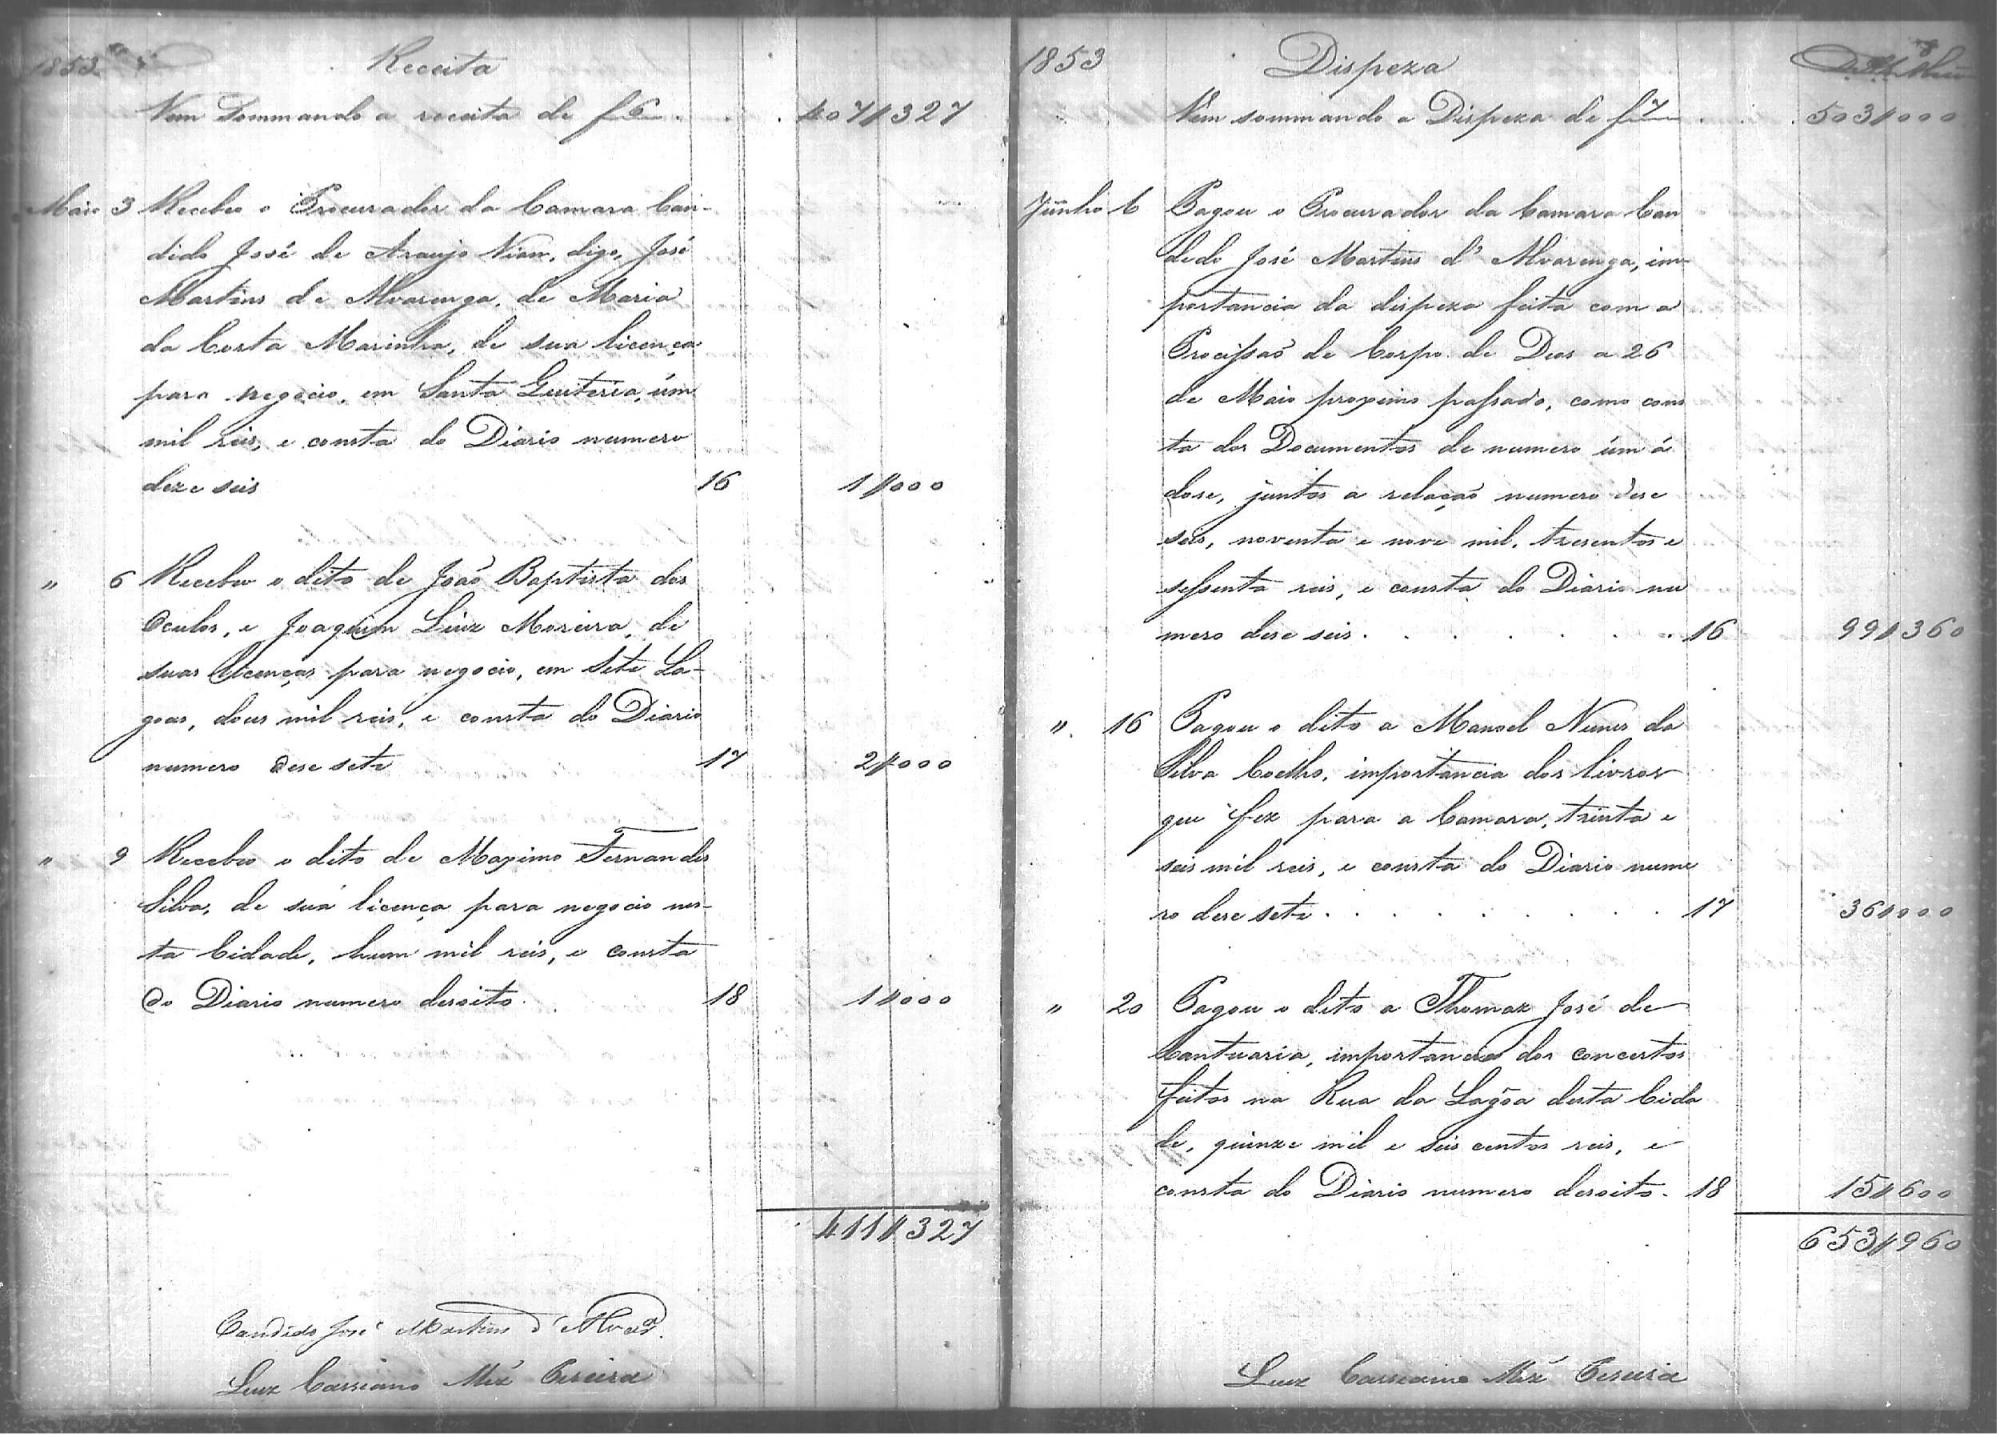 1853
Receita
Vem Sommando a receita de f 6 407$327
Maio 3 Recebeo o Procurador da Camara Can-
dido José de Araujo Vian, digo, José
Martins de Alvarenga, de Maria
da Costa Marinha, de sua licença
para negocio, em Santa Quiteria, úm
mil reis, e consta do Diario numero
deze seis 16 1$000
" 6 Recebeo o dito de João Baptista dos
Oculos, e Joaquim Luiz Moreira, de
suas licenças para negocio, em Sete La-
goas, dous mil reis, e consta do Diario
numero dese sete 17 2$000
" 9 Recebeo o dito de Maximo Fernandes
Silva, de sua licença para negocio nes-
ta Cidade, hum mil reis, e consta
do Diario numero desoito. 18 1$000
411$327
Candido José Martins d'Alvª.
Luiz Cassiano Miz Pereira
1853
Dispeza
8
Vem sommando a Dispeza de f 7 503$000
Junho 6 Pagou o Procurador da Camara Can
dedo José Martins d'Alvarenga, im-
portancia da dispeza feita com a
Procissaõ de Corpo de Deos a 26
de Maio proximo passado, como cons
ta dos Documentos de numero úm á
dose, juntos a relaçaõ numero dese
seis, noventa e nove mil, tresentos e
sessenta reis, e consta do Diario nu
mero dese seis. 16 99$360
" 16 Pagou o dito a Manoel Nunes da
Silva Coelho, importancia dos livros
que fez para a Camara, trinta e
seis mil reis, e consta do Diario nume
ro dese sete 17 36$000
" 20 Pagou o dito a Thomaz José de
Cantuaria, importancia dos concertos
feitos na Rua da Lagõa desta Cida
de, quinze mil e seis centos reis, e
consta do Diario numero desoito. 18 15$600
653$960
Luiz Cassiano Miz Pereira